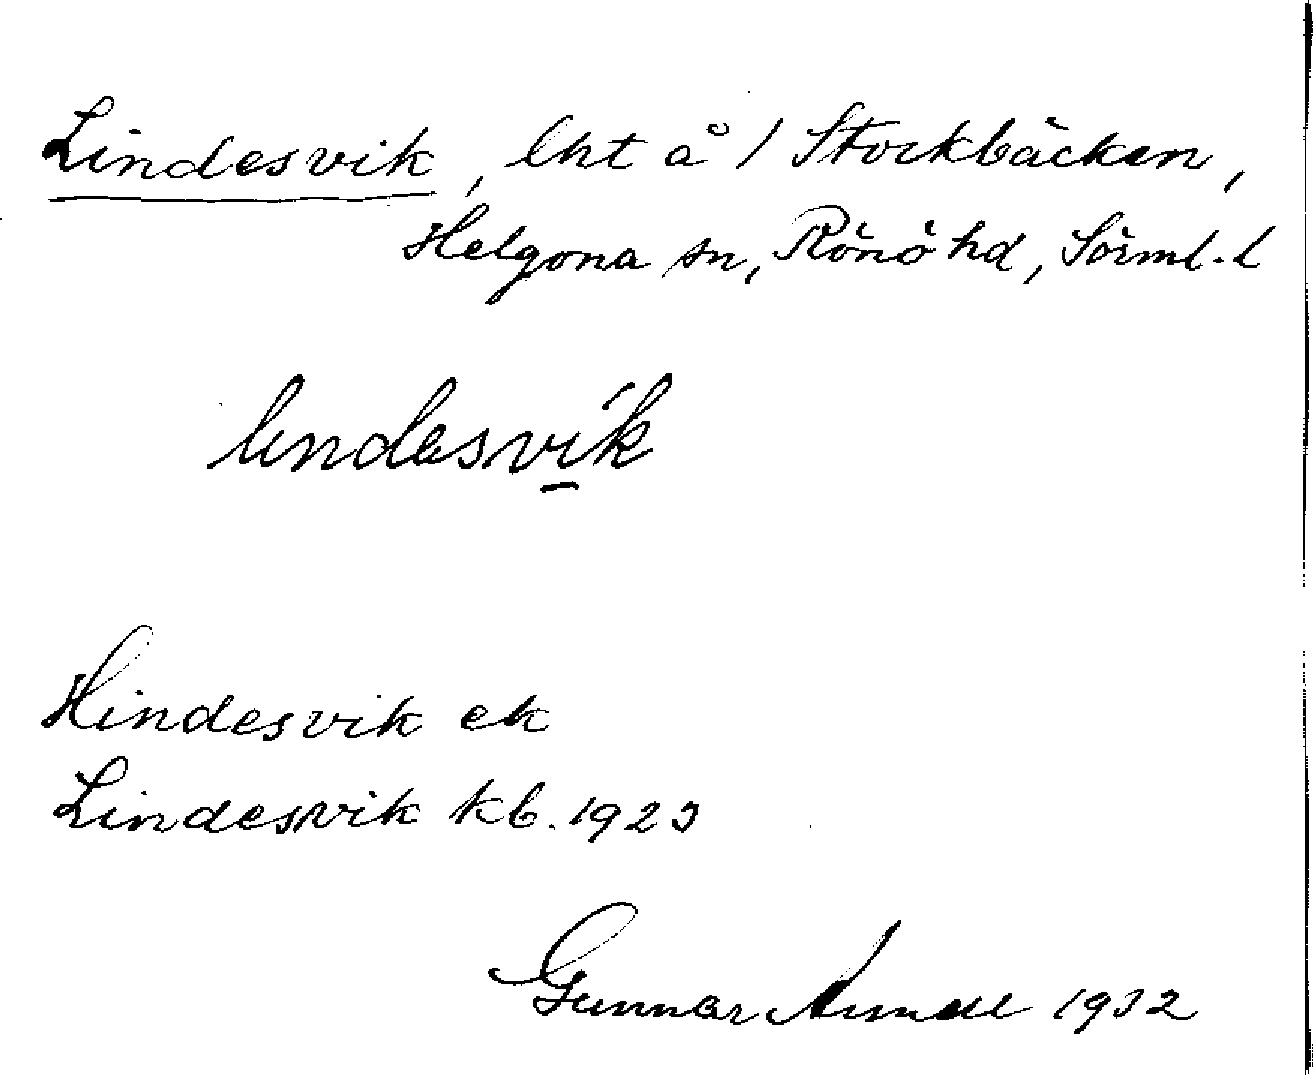 Lindesvik, lht å 1 Stockbäcken,
Helgona sn, Rönö hd, Sörml. l
lindesvik
Hindesvik ek
Lindesvik kb. 1923
Gunnar 1932